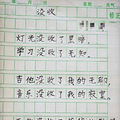 没收
灯光没收了黑暗，
学习没收了无知。
吉他没收了我的无聊，
音乐没收了我的寂寞。